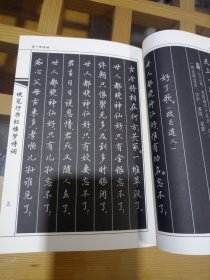 好了歌
世人都晓神仙好惟有功名忘不了
古今将相在何方荒冢一堆草没了
世人都晓神仙好只有金银忘不了
终朝只恨聚无多及到多时眼闭了
世人都晓神仙好只有姣妻忘不了
君生日日说恩情君死又随人去了
世人都晓神仙好只有儿孙忘不了
痴心父母古来多孝顺儿孙谁见了
硬笔行书红楼梦诗词
五